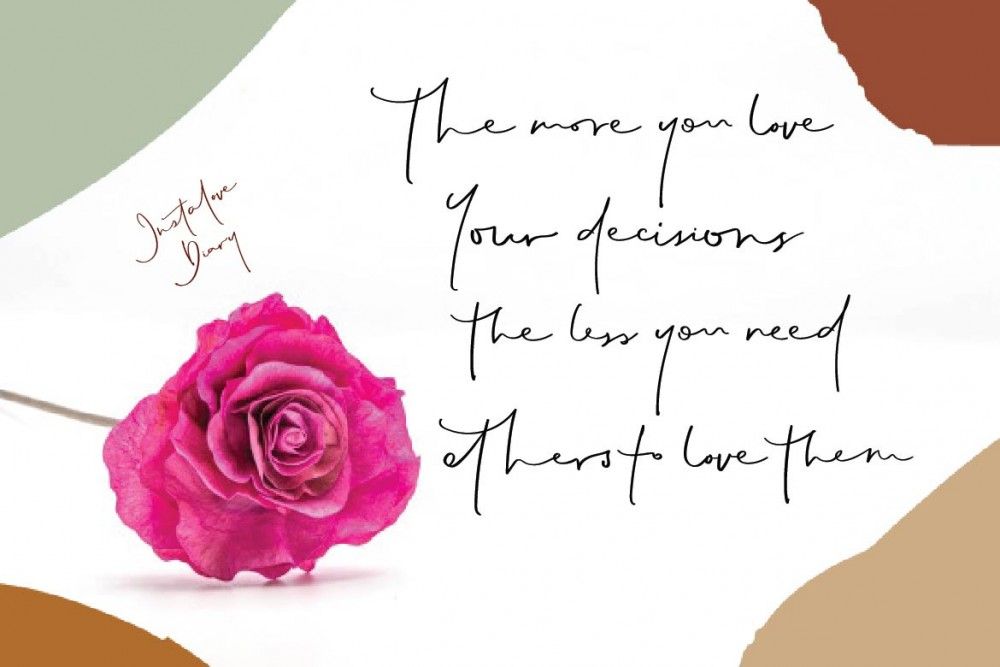 The more you love
Your decisions
the less you need
others to love them
Instalove
Diary